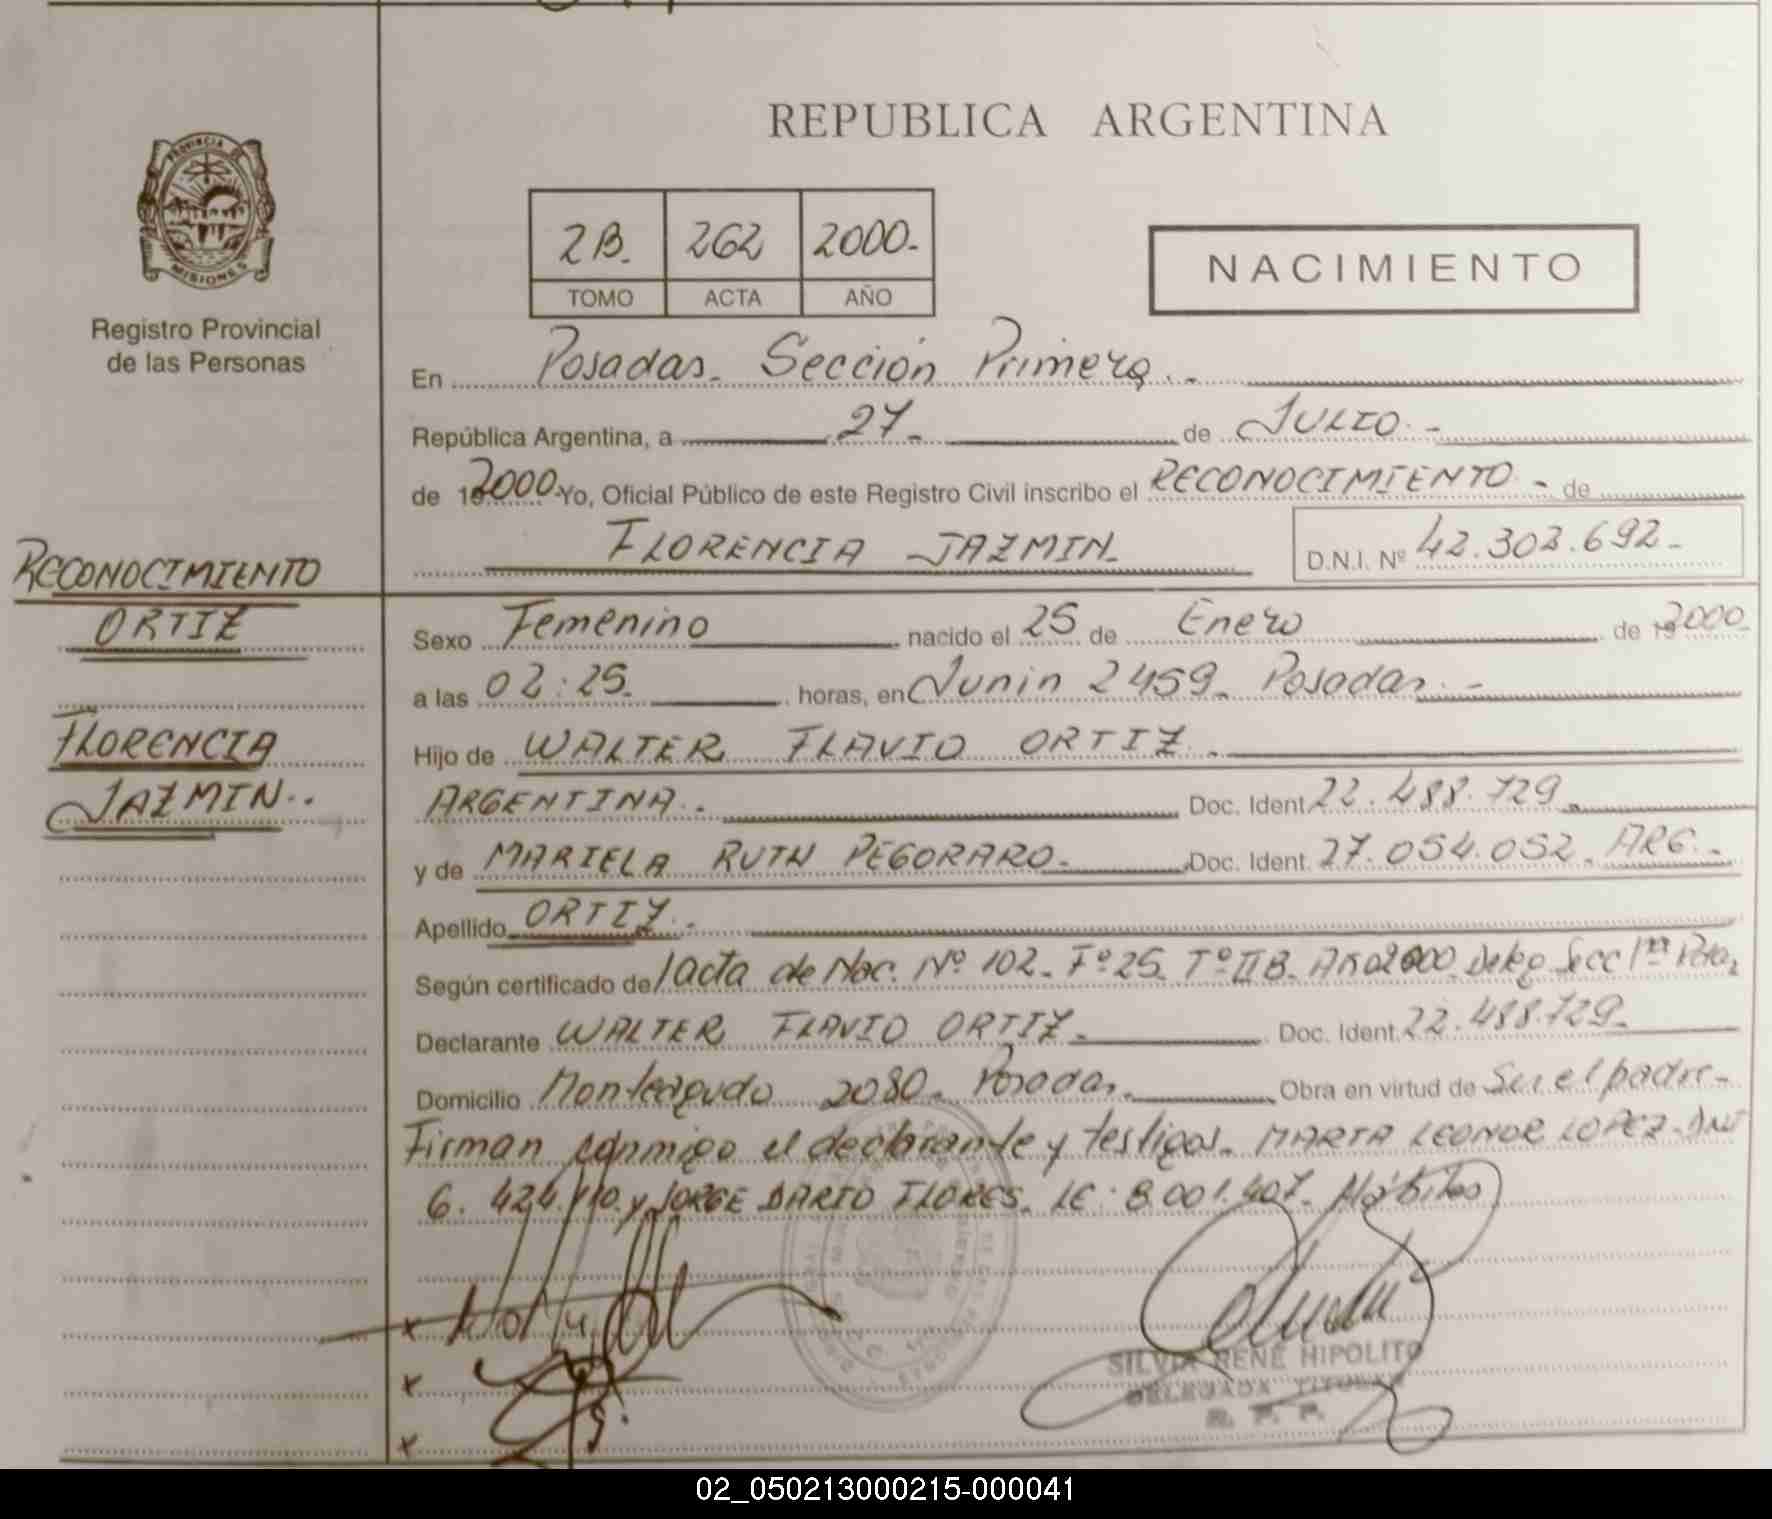 REPUBLICA ARGENTINA
PROVINCIA DE
MISIONES
Registro Provincial
de las Personas
2B. 262 2000.-
TOMO ACTA AÑO
NACIMIENTO
En Posadas. Sección Primera.-
República Argentina, a 27.- de JULIO.-
de 2000 Yo, Oficial Público de este Registro Civil inscribo el RECONOCIMIENTO - de
FLORENCIA JAZMIN. D.N.I. Nº 42.302.692.-
RECONOCIMIENTO
ORTIZ
FLORENCIA
JAZMIN..
Sexo Femenino nacido el 25 de Enero de 2000.
a las 02:25. horas, en Junin 2459. Posadas.-
Hijo de WALTER FLAVIO ORTIZ.-
ARGENTINA.. Doc. Ident 22.488.729.
y de MARIELA RUTH PEGORARO. Doc. Ident. 27.054.052. ARG.-
Apellido ORTIZ.-
Según certificado de acta de Nac. Nº 102. Fº 25. Tº IIB. Año 2000 Secc 1ra
Declarante WALTER FLAVIO ORTIZ. Doc. Ident. 22.488.729.
Domicilio Monteagudo 2080. Posadas. Obra en virtud de Ser el padre.-
Firman conmigo el declarante y testigos. MARTA LEONOR LOPEZ. DNI
6.424.110. y JORGE DARIO FLORES. LE: 8.001.407. Hábiles
x
x
x
SILVIA RENE HIPOLITO
DELEGADA TITULAR
R. P. P.
02_050213000215-000041